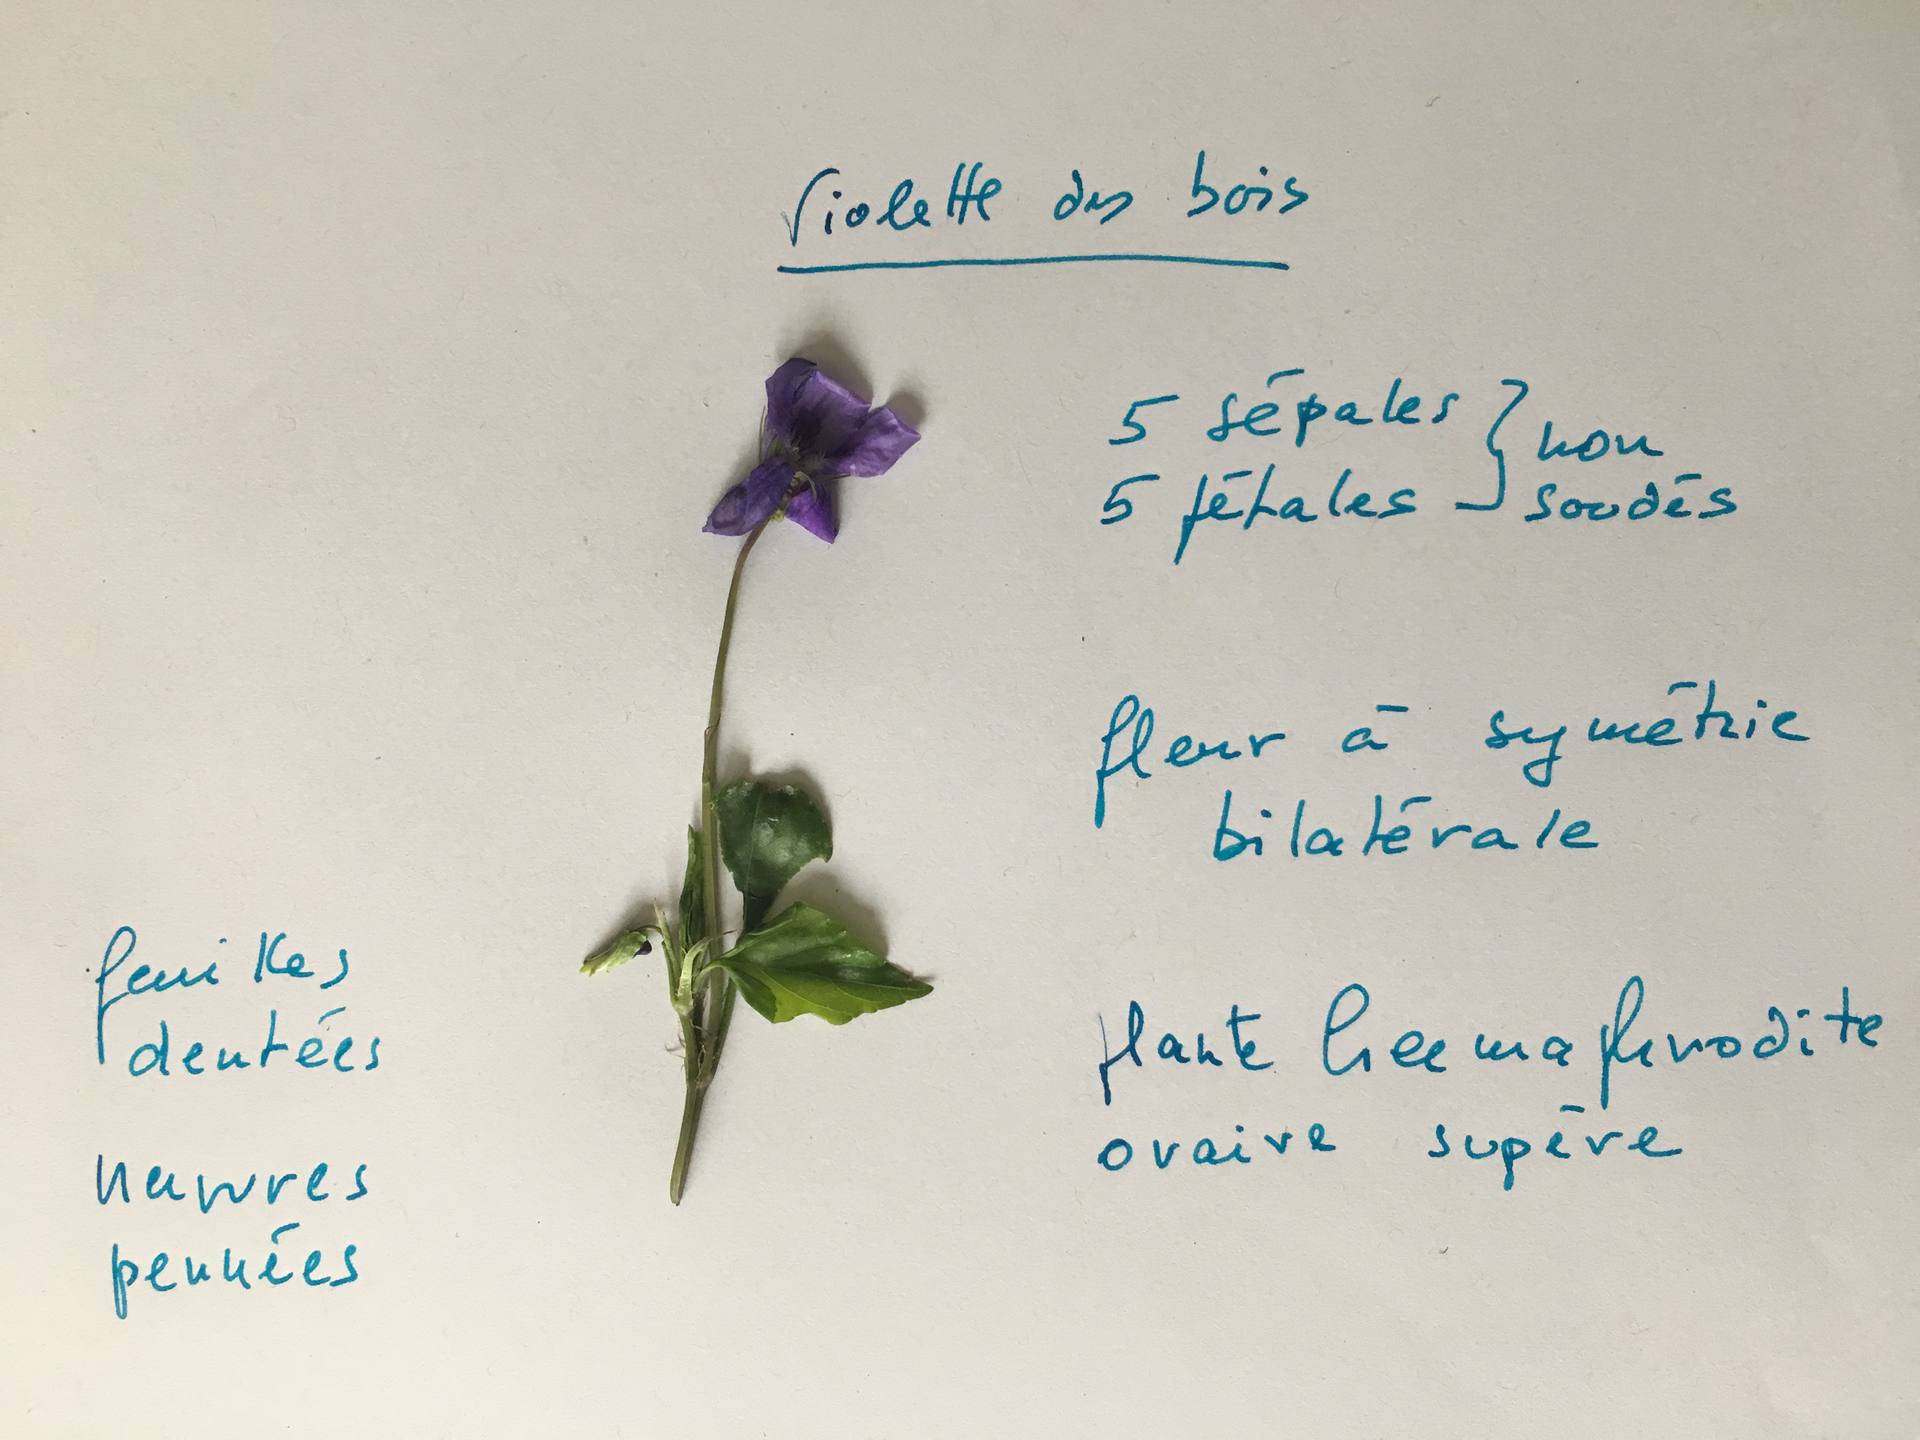 Violette des bois
5 sépales } non
5 pétales } soudés
fleur à symétrie
bilatérale
feuilles
dentées
plante hermaphrodite
ovaire supère
nervures
pennées